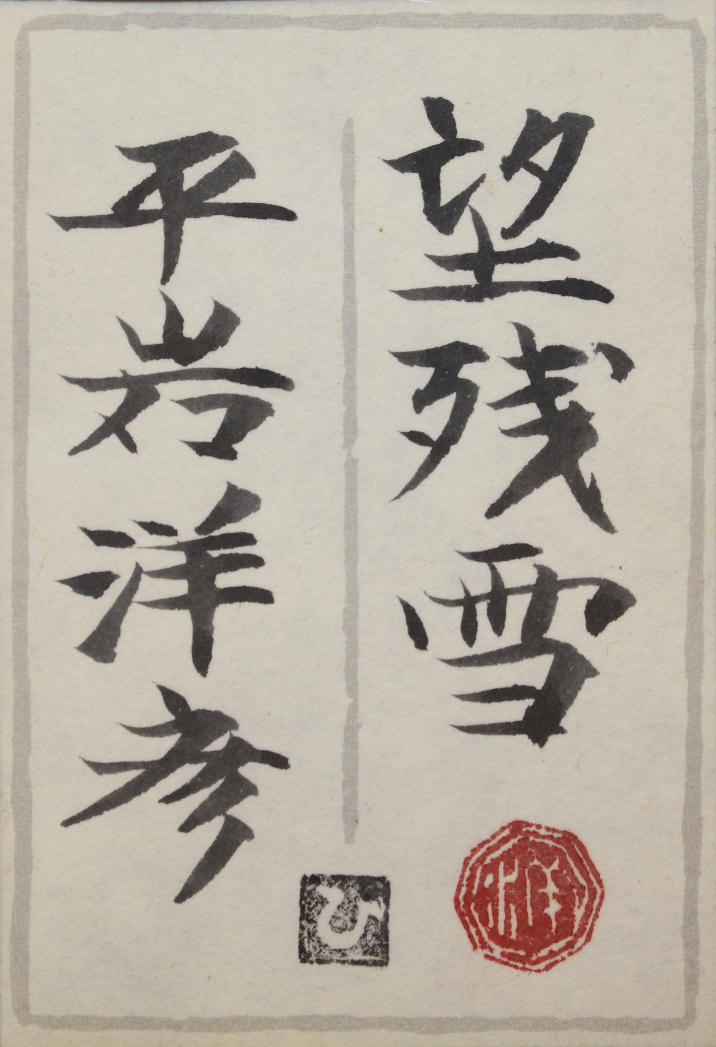 望残雪
平岩洋彦
ひ